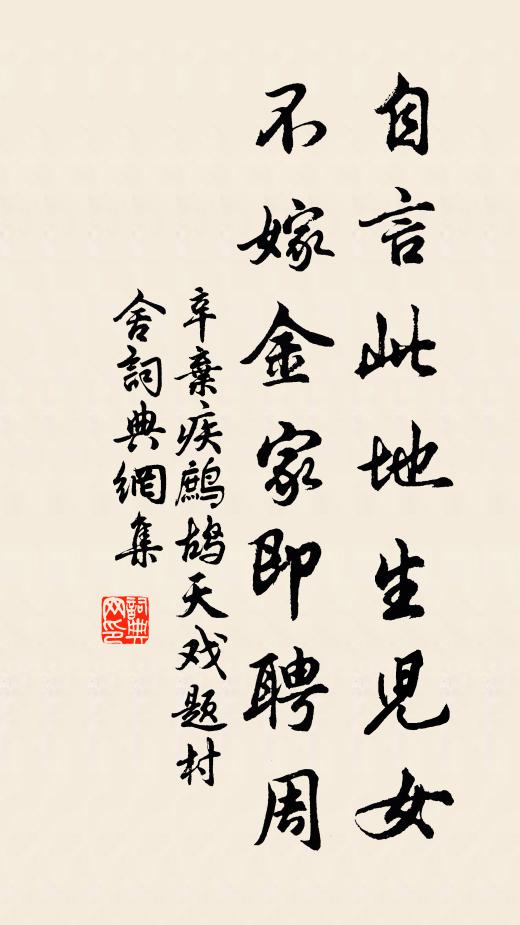 自言此地生児女
不嫁金家即聘周
辛棄疾鷓鴣天戏题村
舍詞典網集
詞典网印